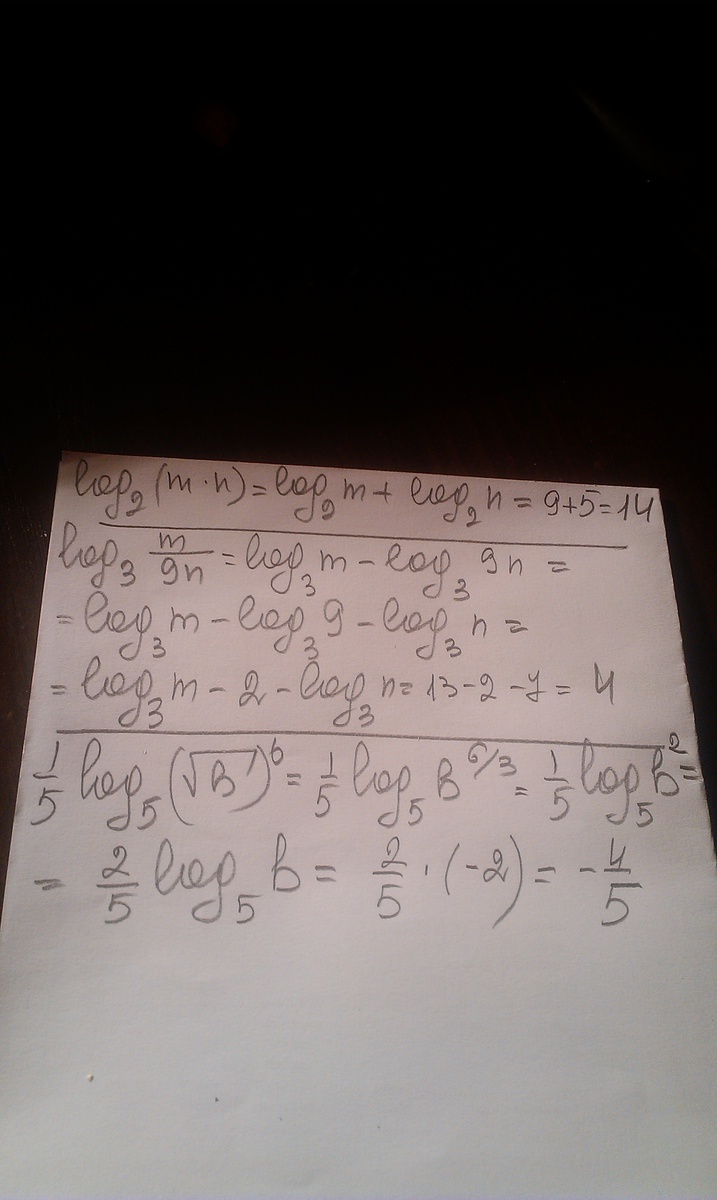 log₂(m·n)=log₂m+log₂n=9+5=14
log₃ m/9n=log₃m-log₃9n=
=log₃m-log₃9-log₃n=
=log₃m-2-log₃n=13-2-7=4
1/5 log₅(√B)⁶=1/5 log₅B^(6/3)=1/5 log₅B²=
=2/5 log₅B=2/5·(-2)=-4/5